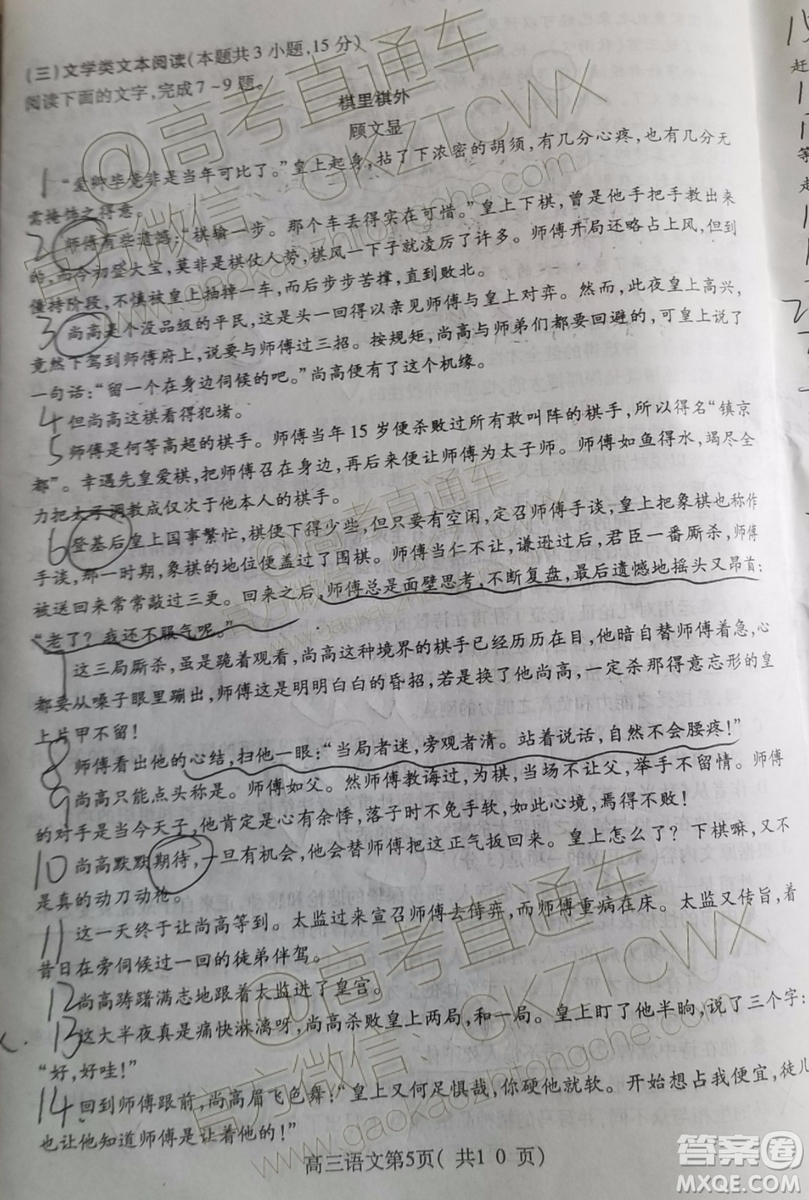 (三)文学类文本阅读(本题共3小题,15分)
阅读下面的文字,完成7~9题。
棋里棋外
顾文显
1 “爱卿毕竟非是当年可比了。”皇上起身,拈了下浓密的胡须,有几分心疼,也有几分无
需掩饰之得意。
2 师傅有些遗憾:“棋输一步。那个车丢得实在可惜。”皇上下棋,曾是他手把手教出来
的,而今初登大宝,莫非是棋仗人势,棋风一下子就凌厉了许多。师傅开局还略占上风,但到
僵持阶段,不慎被皇上抽掉一车,而后步步苦撑,直到败北。
3 尚高是个没品级的平民,这是头一回得以亲见师傅与皇上对弈。然而,此夜皇上高兴,
竟然下驾到师傅府上,说要与师傅过三招。按规矩,尚高与师弟们都要回避的,可皇上说了
一句话:“留一个在身边伺候的吧。”尚高便有了这个机缘。
4 但尚高这棋看得犯堵。
5 师傅是何等高超的棋手。师傅当年15岁便杀败过所有敢叫阵的棋手,所以得名“镇京
都”。幸遇先皇爱棋,把师傅召在身边,再后来便让师傅为太子师。师傅如鱼得水,竭尽全
力把太子调教成仅次于他本人的棋手。
6 登基后皇上国事繁忙,棋便下得少些,但只要有空闲,定召师傅手谈,皇上把象棋也称作
手谈,那一时期,象棋的地位便盖过了围棋。师傅当仁不让,谦逊过后,君臣一番厮杀,师傅
被送回来常常敲过三更。回来之后,师傅总是面壁思考,不断复盘,最后遗憾地摇头又昂首:
“老了?我还不服气呢。”
7 这三局厮杀,虽是跪着观看,尚高这种境界的棋手已经历历在目,他暗自替师傅着急,心
都要从嗓子眼里蹦出,师傅这是明明白白的昏招,若是换了他尚高,一定杀那得意忘形的皇
上片甲不留!
8 师傅看出他的心结,扫他一眼:“当局者迷,旁观者清。站着说话,自然不会腰疼!”
9 尚高只能点头称是。师傅如父。然而师傅教诲过,为棋,当场不让父,举手不留情。师傅
的对手是当今天子,他肯定是心有余悸,落子时不免手软,如此心境,焉得不败!
10 尚高默默期待,一旦有机会,他会替师傅把这正气扳回来。皇上怎么了?下棋嘛,又不
是真的动刀动枪。
11 这一天终于让尚高等到。太监过来宣召师傅去侍弈,而师傅重病在床。太监又传旨,着
昔日在旁伺候过一回的徒弟伴驾。
12 尚高踌躇满志地跟着太监进了皇宫。
13 这大半夜真是痛快淋漓呀,尚高杀败皇上两局,和一局。皇上盯了他半晌,说了三个字:
“好,好哇!”
14 回到师傅跟前,尚高眉飞色舞:“皇上又何足惧哉,你硬他就软。开始想占我便宜,徒儿
也让他知道师傅是让着他的!”
高三语文第5页( 共1 0 页)